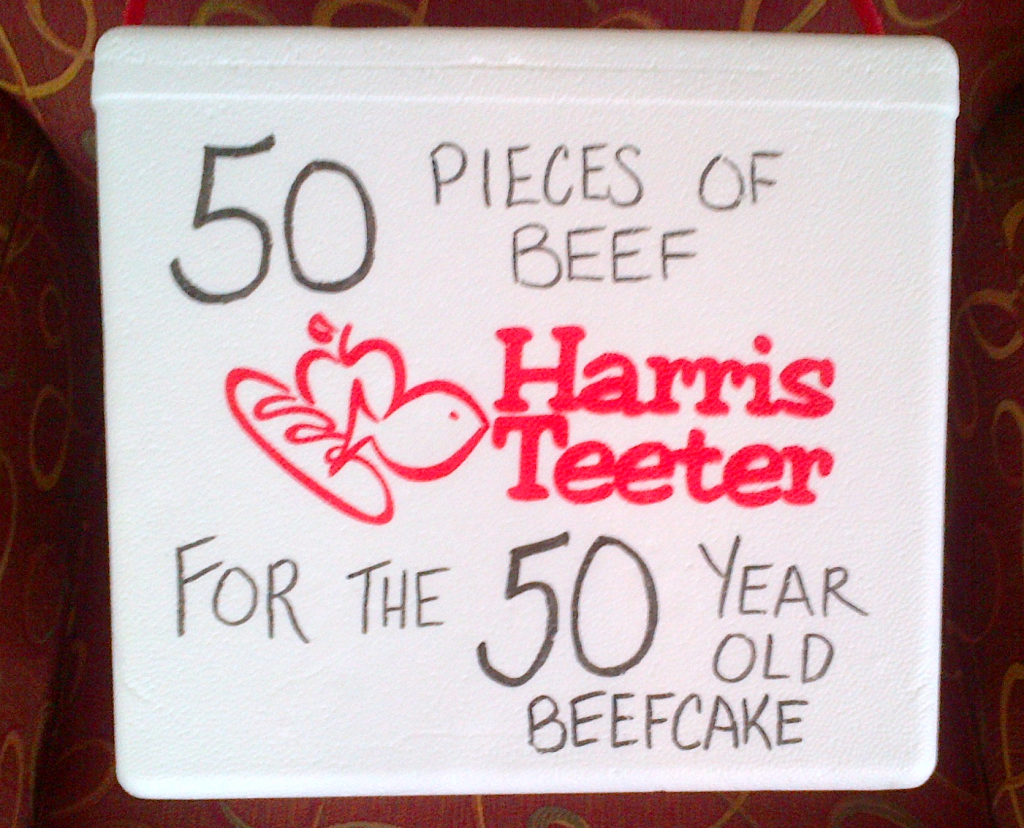 50 PIECES OF
BEEF
Harris
Teeter
FOR THE 50 YEAR
OLD
BEEFCAKE